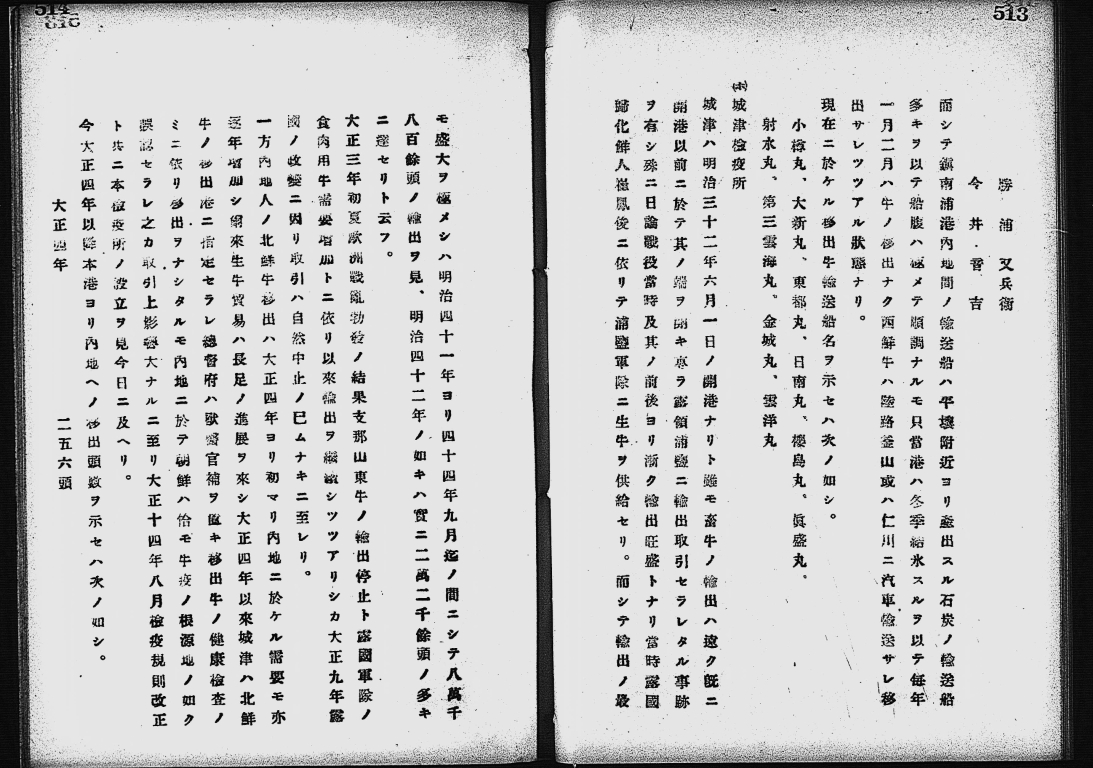 513
勝浦又兵衞
今井音吉
而シテ鎭南浦港內地間ノ輸送船ハ平壤附近ヨリ產出スル石炭ノ輸送船
多キヲ以テ船腹ハ極メテ順調ナルモ只當港ハ冬季結氷スルヲ以テ每年
一月二月ハ牛ノ移出ナク西鮮牛ハ陸路釜山或ハ仁川ニ汽車輸送サレ移
出サレツツアル狀態ナリ。
現在ニ於ケル移出牛輸送船名ヲ示セハ次ノ如シ。
小樽丸、大新丸、東都丸、日南丸、櫻島丸、眞盛丸、
射水丸、第三雲海丸、金城丸、雲洋丸
(ホ)城津檢疫所
城津ハ明治三十二年六月一日ノ開港ナリト雖モ畜牛ノ輸出ハ遠ク旣ニ
開港以前ニ於テ其ノ端ヲ開キ專ラ露領浦鹽ニ輸出取引セラレタル事跡
ヲ有シ殊ニ日露戰役當時及其ノ前後ヨリ漸ク輸出旺盛トナリ當時露國
歸化鮮人崔鳳俊ニ依リテ浦鹽軍隊ニ生牛ヲ供給セリ。而シテ輸出ノ最
514
モ盛大ヲ極メシハ明治四十一年ヨリ四十四年九月迄ノ間ニシテ八萬千
八百餘頭ノ輸出ヲ見、明治四十二年ノ如キハ實ニ二萬二千餘頭ノ多キ
ニ達セリト云フ。
大正三年初夏歐洲戰亂勃發ノ結果支那山東牛ノ輸出停止ト露國軍隊ノ
食肉用牛需要增加トニ依リ以來輸出ヲ繼續シツツアリシカ大正九年露
國ノ政變ニ因リ取引ハ自然中止ノ已ムナキニ至レリ。
一方內地人ノ北鮮牛移出ハ大正四年ヨリ初マリ內地ニ於ケル需要モ亦
逐年增加シ爾來生牛貿易ハ長足ノ進展ヲ來シ大正四年以來城津ハ北鮮
牛ノ移出港ニ指定セラレ總督府ハ獸醫官補ヲ置キ移出牛ノ健康檢査ノ
ミニ依リ移出ヲナシタルモ內地ニ於テ朝鮮ハ恰モ牛疫ノ根源地ノ如ク
誤認セラレ之カ取引上影響大ナルニ至リ大正十四年八月檢疫規則改正
ト共ニ本檢疫所ノ設立ヲ見今日ニ及ヘリ。
今大正四年以降本港ヨリ內地ヘノ移出頭數ヲ示セハ次ノ如シ。
大正四年　二五六頭